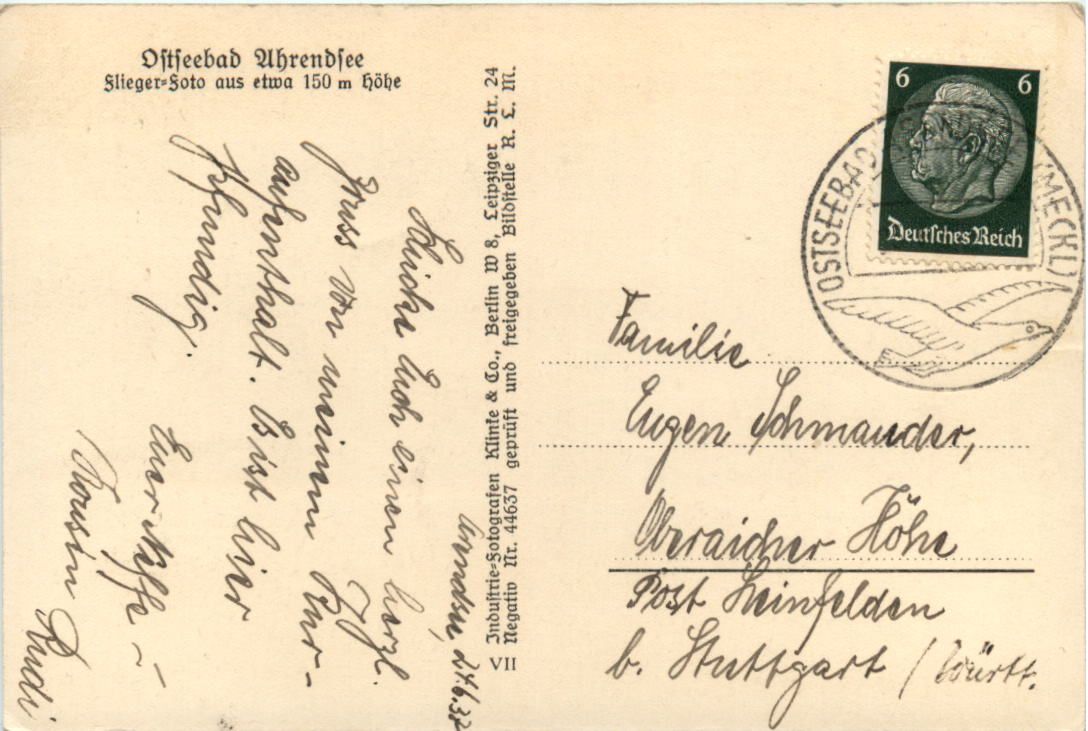 Ostseebad Ahrendsee
Flieger=Foto aus etwa 150 m Höhe
Arendsee, 24.6.37
Schicke Euch einen herzl.
Gruss von meinem Kur-
aufenthalt. Es ist hier
pfundig.
Euer Neffe –
Cousin Rudi
VII
Industrie=Fotografen Klinke & Co., Berlin W 8, Leipziger Str. 24
Negativ Nr. 44637 geprüft und freigegeben Bildstelle R. L. M.
6 6
Deutsches Reich
OSTSEEBAD
(MECKL)
Familie
Eugen Schmauder,
Oberaicher Höhe
Post Leinfelden
b. Stuttgart / Württ.